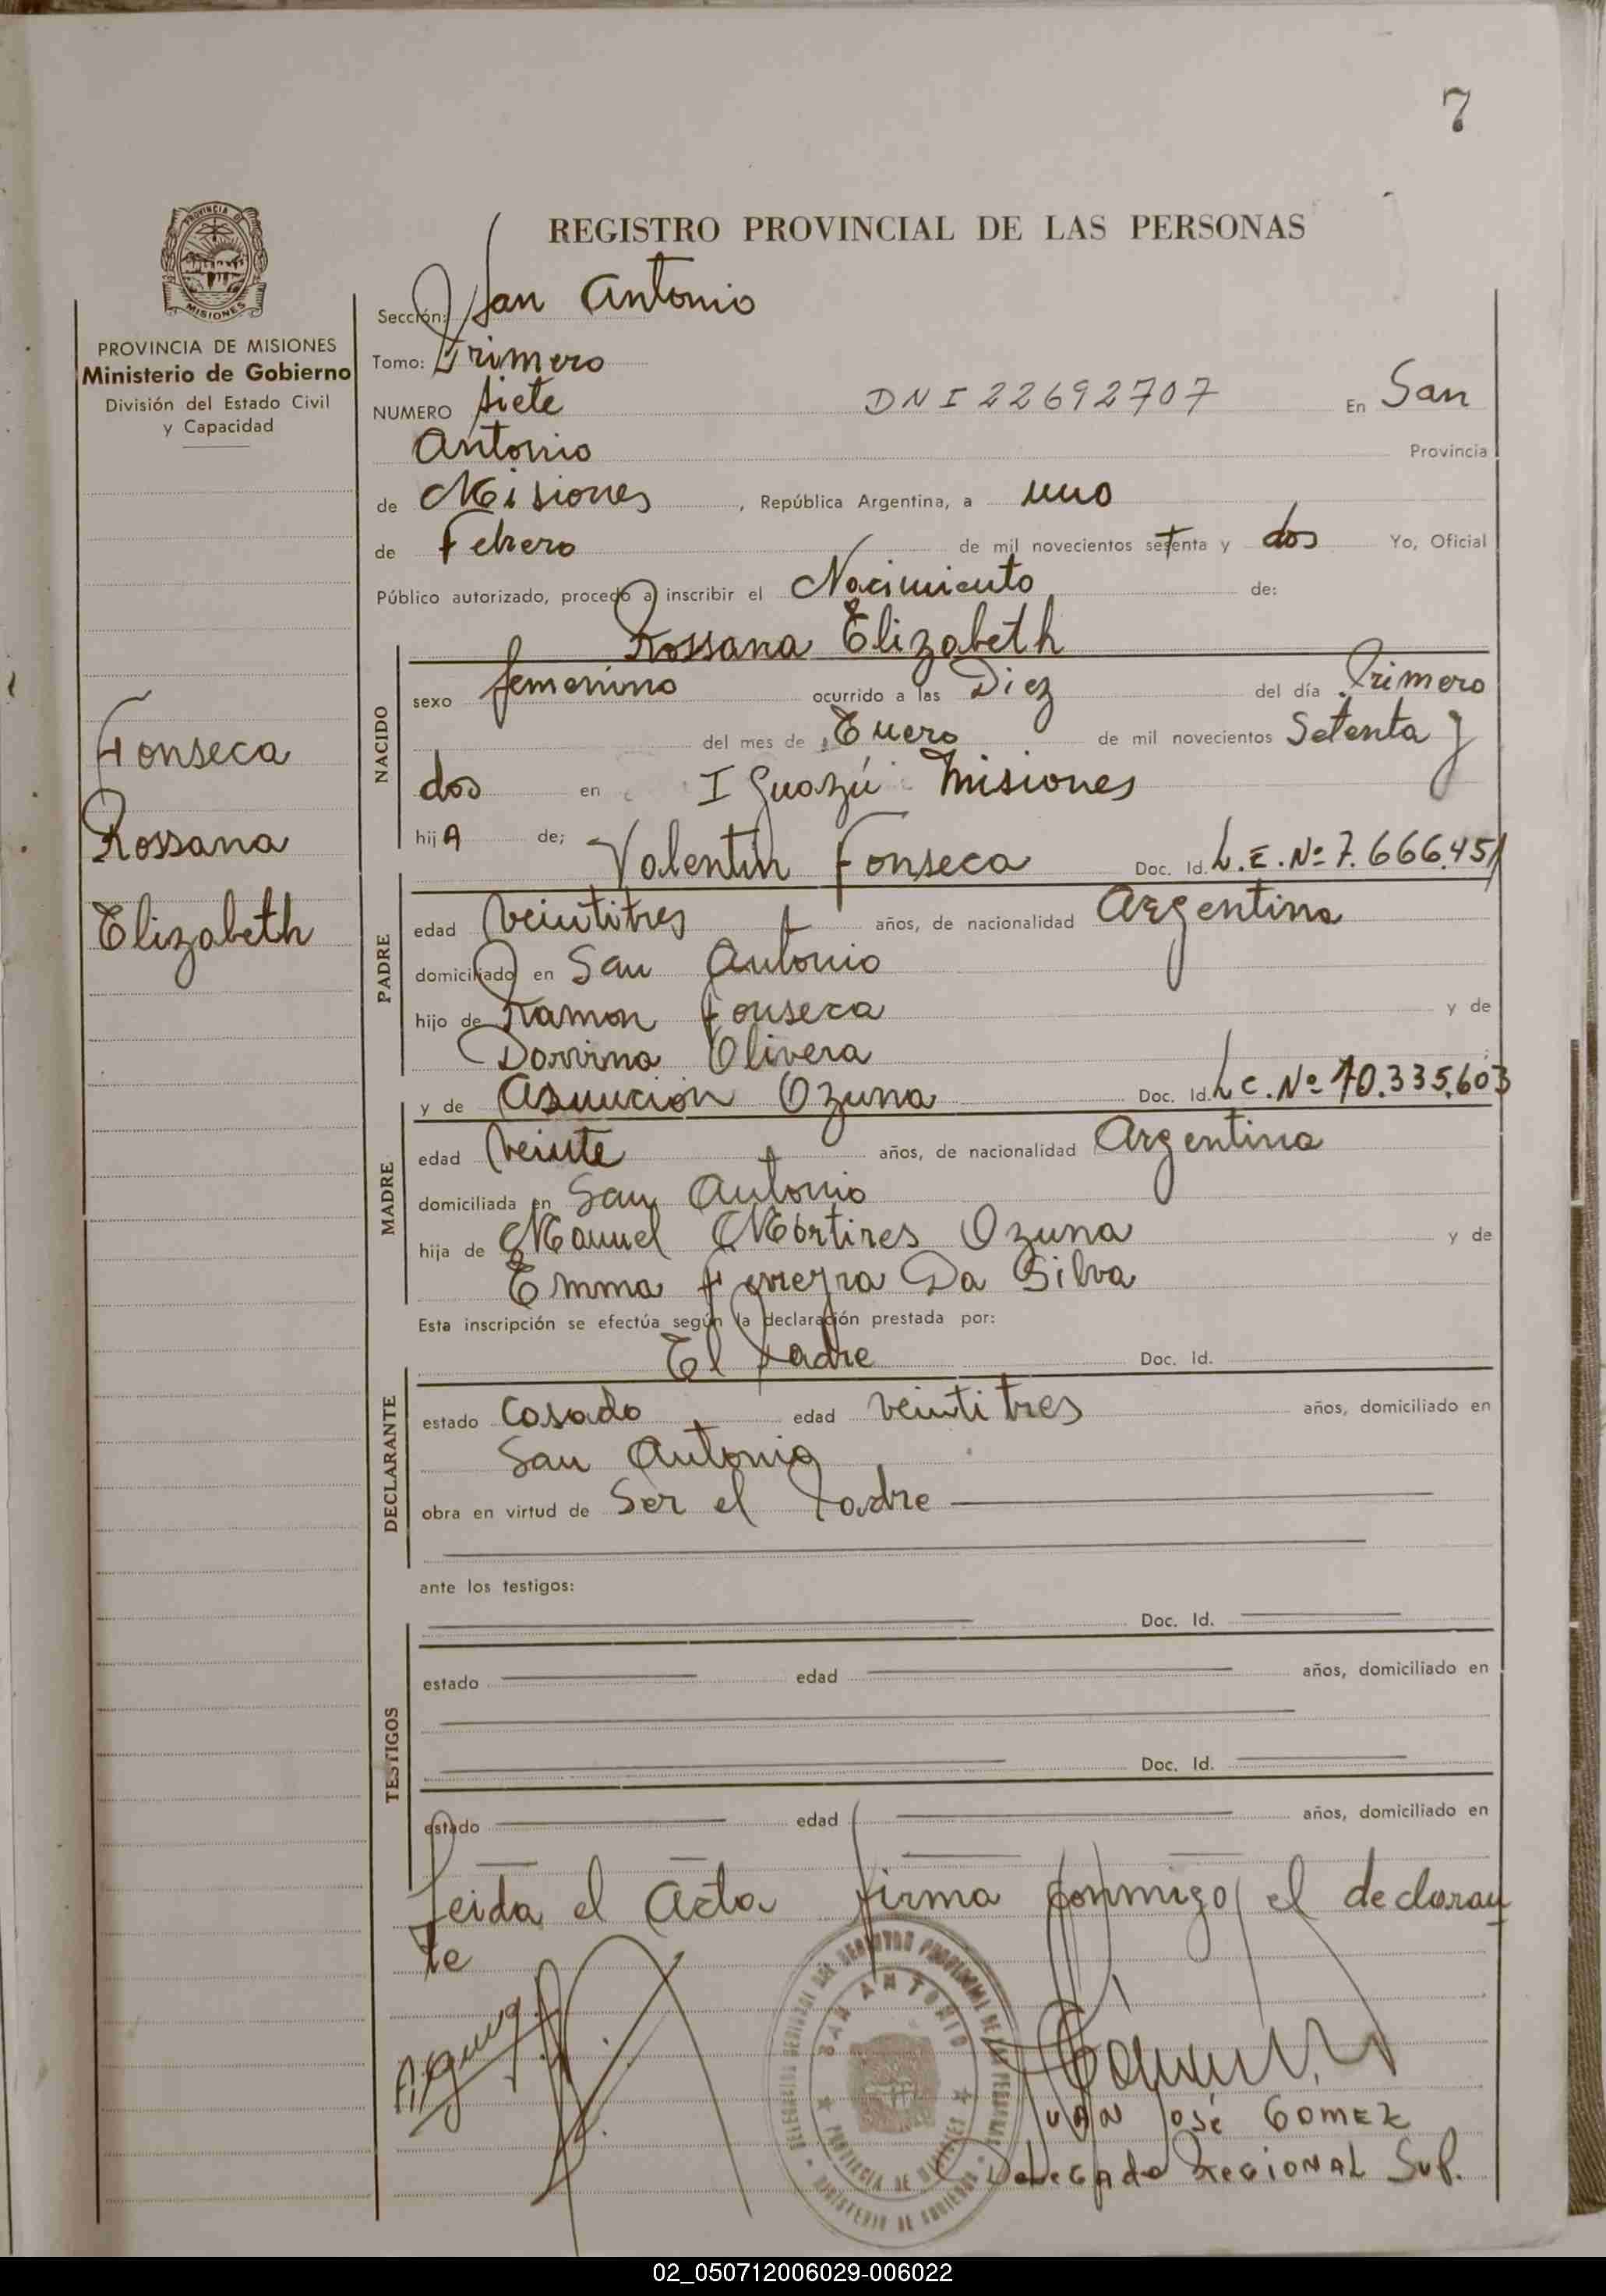 7
REGISTRO PROVINCIAL DE LAS PERSONAS
PROVINCIA DE
MISIONES
PROVINCIA DE MISIONES
Ministerio de Gobierno
División del Estado Civil
y Capacidad
Fonseca
Rossana
Elizabeth
Sección: San Antonio
Tomo: Primero
NUMERO siete DNI 22692707 En San
Antonio Provincia
de Misiones, República Argentina, a uno
de Febrero de mil novecientos setenta y dos Yo, Oficial
Público autorizado, procedo a inscribir el Nacimiento de:
Rossana Elizabeth
NACIDO
sexo femenino ocurrido a las Diez del día Primero
del mes de Enero de mil novecientos Setenta y
dos en Iguazú Misiones
hijA de;
Valentín Fonseca Doc. Id. L.E. Nº 7.666.451
PADRE
edad veintitres años, de nacionalidad Argentina
domiciliado en San Antonio
hijo de Ramon Fonseca y de
Olivera
y de Asunción Ozuna Doc. Id. L.C. Nº 10.335.603
MADRE
edad veinte años, de nacionalidad Argentina
domiciliada en San Antonio
hija de Manuel Mártires Ozuna y de
Emma Ferreyra Da Silva
Esta inscripción se efectúa según la declaración prestada por:
El Padre Doc. Id.
DECLARANTE
estado Casado edad veintitres años, domiciliado en
San Antonio
obra en virtud de Ser el Padre
ante los testigos:
Doc. Id.
TESTIGOS
estado edad años, domiciliado en
Doc. Id.
estado edad años, domiciliado en
Leida el Acta firma conmigo el declaran
te
SAN ANTONIO
PROVINCIA DE MISIONES
MINISTERIO DE GOBIERNO
JUAN José GOMEZ
Delegado Regional Sup.
02_050712006029-006022